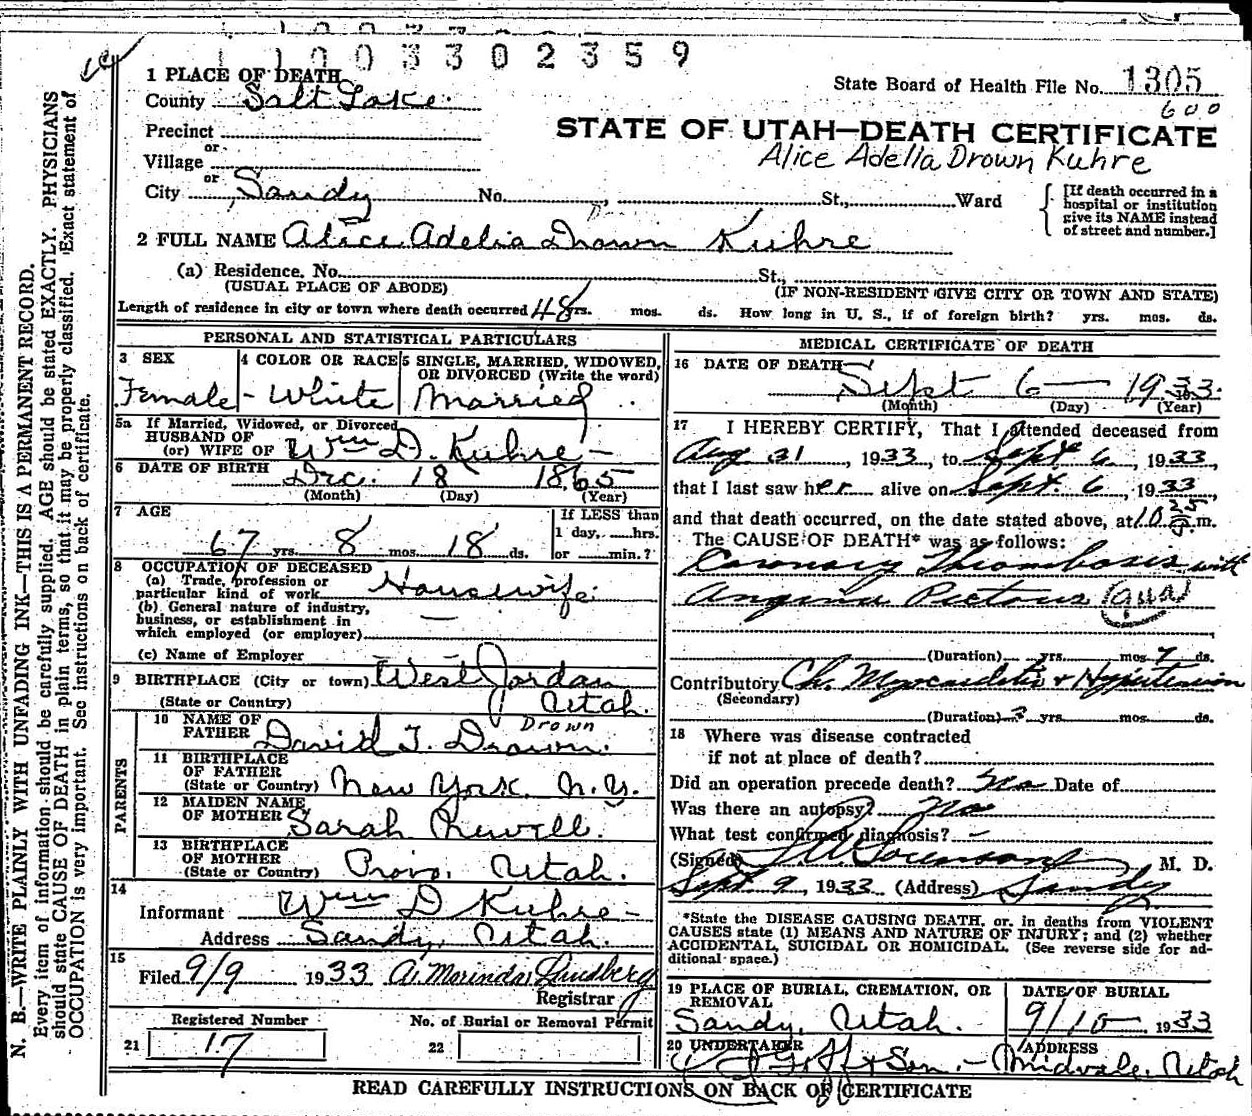 1 1 0 0 3 3 0 2 3 5 9
1 PLACE OF DEATH
County Salt Lake.
State Board of Health File No. 1305
600
Precinct
or
STATE OF UTAH—DEATH CERTIFICATE
Alice Adella Drown Kuhre
Village
or
City Sandy No. St., Ward
[If death occurred in a
hospital or institution
give its NAME instead
of street and number.]
2 FULL NAME Alice Adelia Drown Kuhre
(a) Residence. No. St.,
(USUAL PLACE OF ABODE) (IF NON-RESIDENT GIVE CITY OR TOWN AND STATE)
Length of residence in city or town where death occurred 48 yrs. mos. ds. How long in U. S., if of foreign birth? yrs. mos. ds.
PERSONAL AND STATISTICAL PARTICULARS
3 SEX
Female
4 COLOR OR RACE
White
5 SINGLE, MARRIED, WIDOWED,
OR DIVORCED (Write the word)
Married
5a If Married, Widowed, or Divorced
HUSBAND OF
(or) WIFE OF Wm D. Kuhre
6 DATE OF BIRTH Dec. 18 1865
(Month) (Day) (Year)
7 AGE
67 yrs. 8 mos. 18 ds.
If LESS than
1 day, hrs.
or min.?
8 OCCUPATION OF DECEASED
(a) Trade, profession or
particular kind of work Housewife
(b) General nature of industry,
business, or establishment in
which employed (or employer)
(c) Name of Employer
9 BIRTHPLACE (City or town) West Jordan
(State or Country) Utah.
PARENTS
10 NAME OF
FATHER David T. Drown.
Drown
11 BIRTHPLACE
OF FATHER
(State or Country) New York. N.Y.
12 MAIDEN NAME
OF MOTHER Sarah
13 BIRTHPLACE
OF MOTHER
(State or Country) Provo, Utah.
14
Informant Wm D Kuhre
Address Sandy, Utah.
15
Filed 9/9 1933 A. Marinda Lundberg
Registrar
Registered Number No. of Burial or Removal Permit
21 17 22
MEDICAL CERTIFICATE OF DEATH
16 DATE OF DEATH
Sept 6 1933.
(Month) (Day) (Year)
17 I HEREBY CERTIFY, That I attended deceased from
Aug 31, 1933, to Sept. 6, 1933,
that I last saw her alive on Sept. 6, 1933
and that death occurred, on the date stated above, at 10 m.
The CAUSE OF DEATH* was as follows:
Coronary Thrombosis with
Angina Pectoris
(Duration) yrs. mos. 7 ds.
Contributory Ch. Myocarditis & Hypertension
(Secondary)
(Duration) 3 yrs. mos. ds.
18 Where was disease contracted
if not at place of death?
Did an operation precede death? No Date of
Was there an autopsy? No
What test confirmed diagnosis? —
(Signed) Sorenson M. D.
Sept 9, 1933 (Address) Sandy
*State the DISEASE CAUSING DEATH, or, in deaths from VIOLENT
CAUSES state (1) MEANS AND NATURE OF INJURY; and (2) whether
ACCIDENTAL, SUICIDAL OR HOMICIDAL. (See reverse side for ad-
ditional space.)
19 PLACE OF BURIAL, CREMATION, OR
REMOVAL
Sandy, Utah.
DATE OF BURIAL
9/10 1933
20 UNDERTAKER Goff & Son.
ADDRESS
Midvale, Utah
READ CAREFULLY INSTRUCTIONS ON BACK OF CERTIFICATE
N. B.—WRITE PLAINLY WITH UNFADING INK—THIS IS A PERMANENT RECORD.
Every item of information should be carefully supplied. AGE should be stated EXACTLY. PHYSICIANS
should state CAUSE OF DEATH in plain terms, so that it may be properly classified. Exact statement of
OCCUPATION is very important. See instructions on back of certificate.